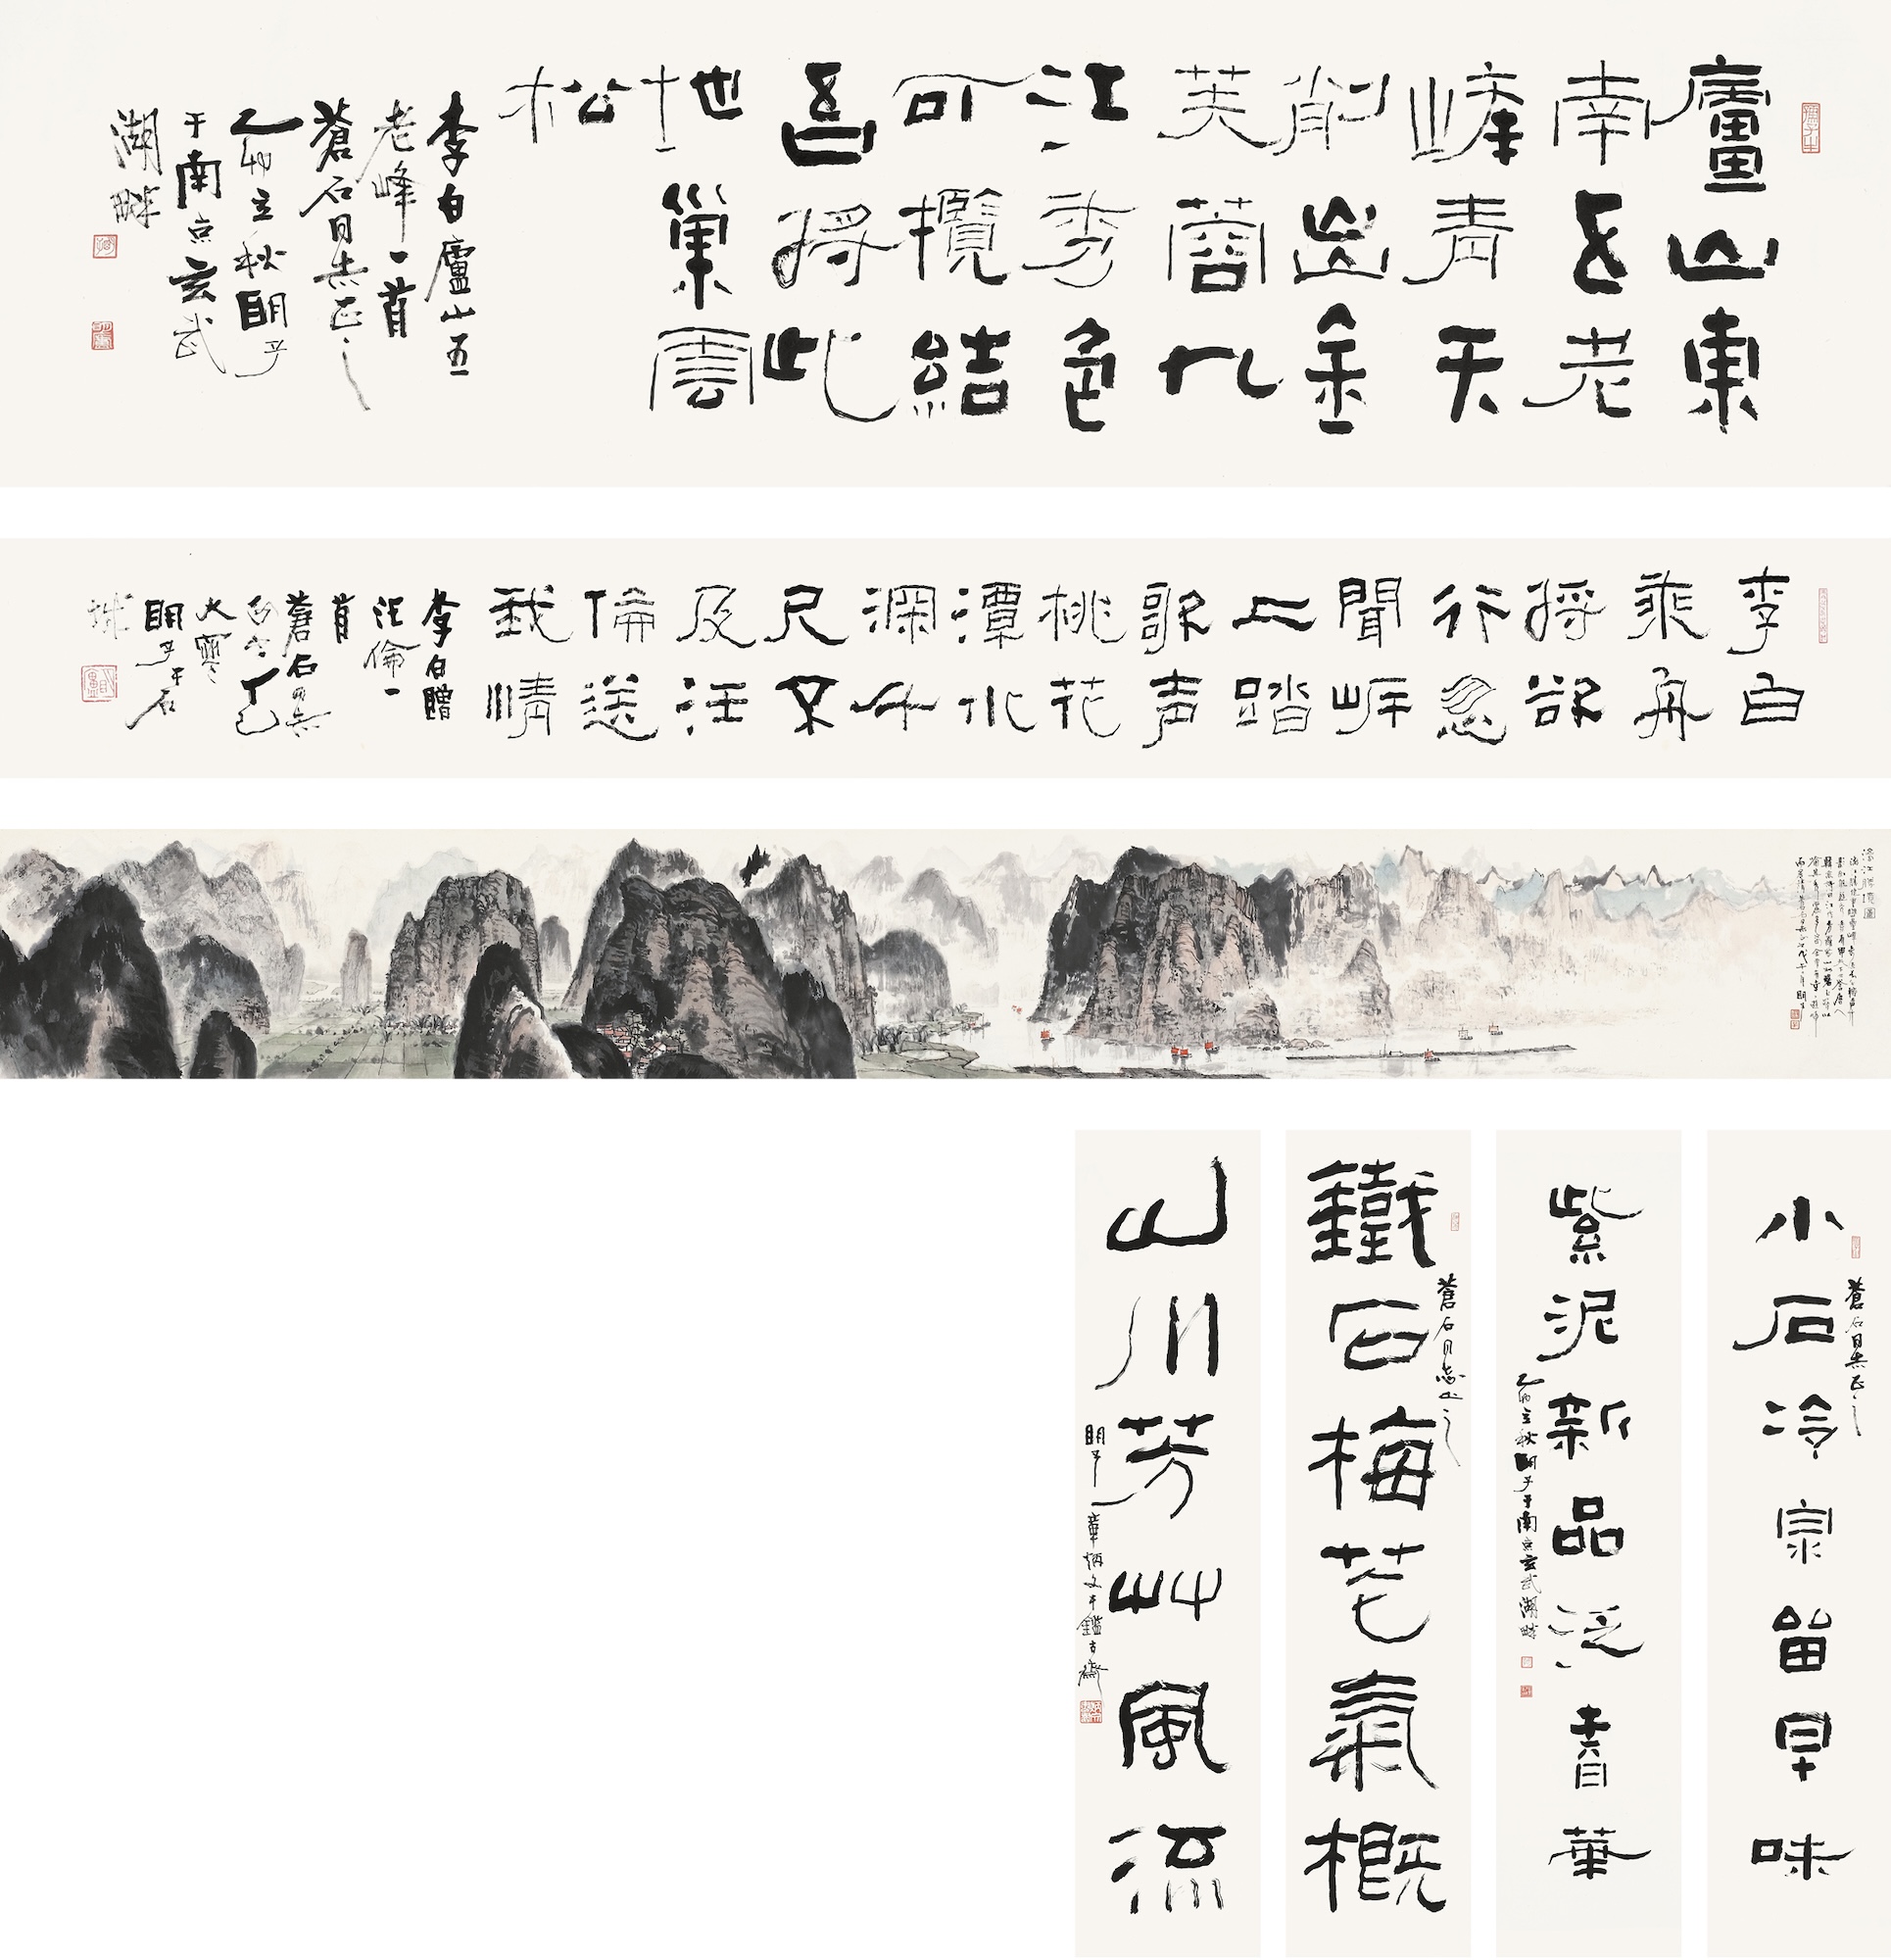 廬山東
南五老
峰青天
削出金
芙蓉九
江秀色
可攬結
吾將此
地巢雲
松
李白廬山五
老峰一首
蒼石同志正之
乙卯立秋明子
于南京玄武
湖畔
李白
乘舟
將欲
行忽
聞岸
上踏
歌声
桃花
潭水
深千
尺不
及汪
倫送
我情
李白贈
汪倫一
首
蒼石同志
丁巳
大寒
明子于石
城
灕江勝境圖
小石冷泉留早味
蒼石同志正之
紫泥新品泛春華
乙卯立秋明子于南京玄武湖畔
鐵石梅花氣概
蒼石同志
山川芳艸風流
章炳文于鑑古齋